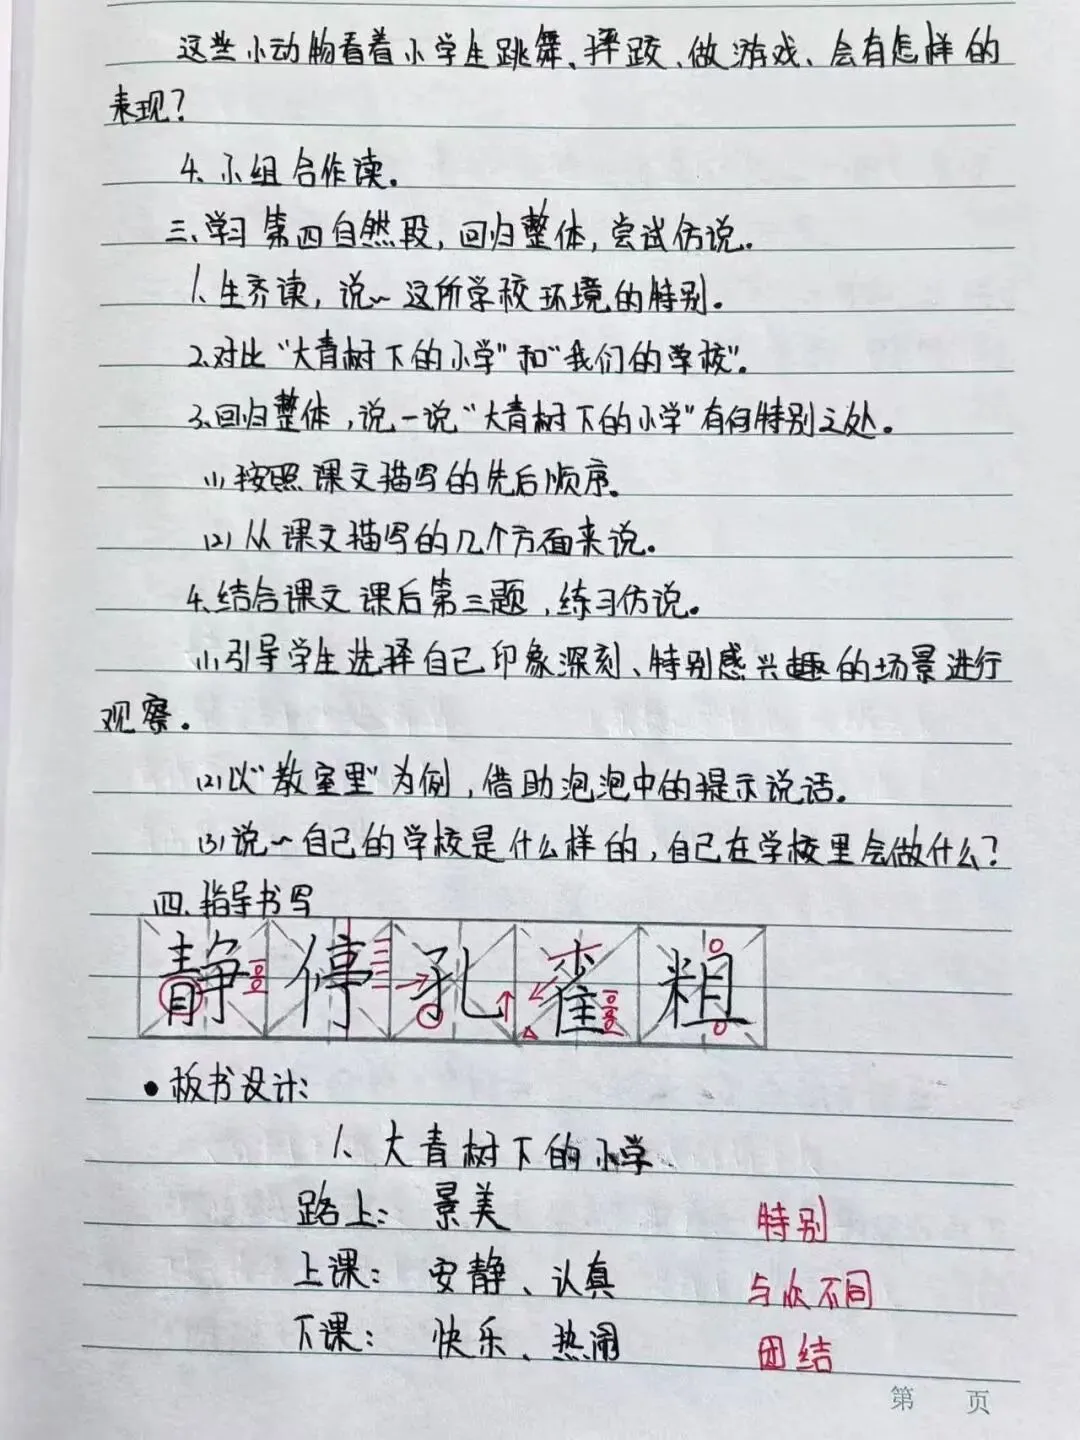 这些小动物看着小学生跳舞、摔跤、做游戏、会有怎样的
表现?
4、小组合作读。
三、学习第四自然段,回归整体,尝试仿说。
1、生齐读,说一说这所学校环境的特别。
2、对比“大青树下的小学”和“我们的学校”。
3、回归整体,说一说“大青树下的小学”有何特别之处。
(1)按照课文描写的先后顺序。
(2)从课文描写的几个方面来说。
4、结合课文课后第三题,练习仿说。
(1)引导学生选择自己印象深刻、特别感兴趣的场景进行
观察。
(2)以“教室里”为例,借助泡泡中的提示说话。
(3)说一说自己的学校是什么样的,自己在学校里会做什么?
四、指导书写
静停孔雀粗
•板书设计:
1、大青树下的小学
路上: 景美 特别
上课: 安静、认真 与众不同
下课: 快乐、热闹 团结
第 页